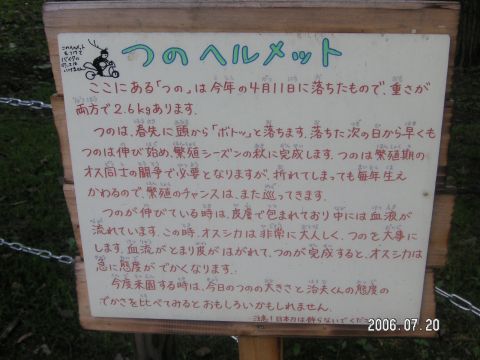 つのヘルメット
ここにある「つの」は今年の4月11日に落ちたもので、重さが
両方で2.6kgあります。
つのは、春先に頭から「ボトッ」と落ちます。落ちた次の日から早くも
つのは伸び始め、繁殖シーズンの秋に完成します。つのは繁殖期の
オス同士の闘争で必要となりますが、折れてしまっても毎年生え
かわるので、繁殖のチャンスは、また巡ってきます。
つのが伸びている時は、皮膚で包まれており中には血液が
流れています。この時、オスシカは非常に大人しく、つのを大事に
します。血流がとまり皮がはがれて、つのが完成すると、オスシカは
急に態度がでかくなります。
今度来園する時は、今日のつのの大きさと治夫くんの態度の
でかさを比べてみるとおもしろいかもしれません。
2006.07.20